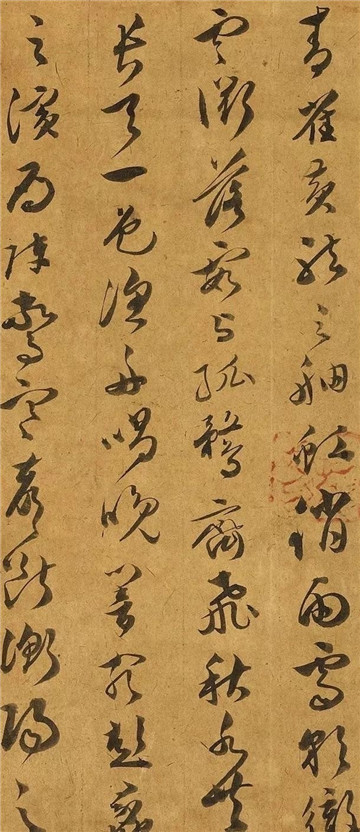 青雀黃龍之舳虹銷雨霽彩徹
雲衢落霞與孤鶩齊飛秋水共
長天一色漁舟唱晚響窮彭蠡
之濱雁陣驚寒聲斷衡陽之